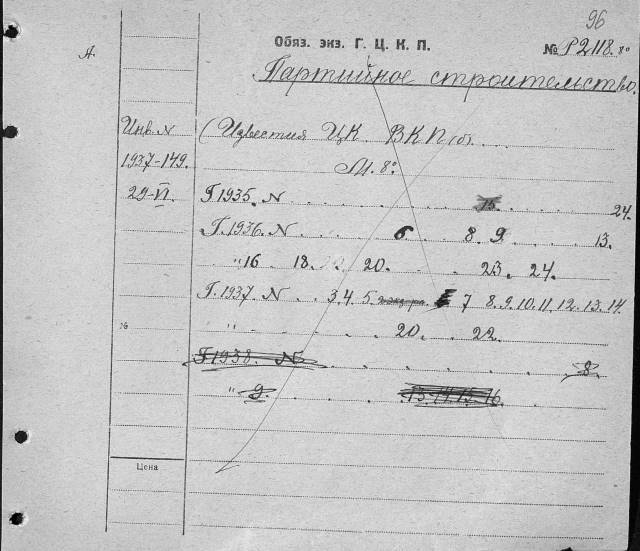 96
Обяз. экз. Г. Ц. К. П.
А
№ Р2118. 8º
Партийное строительство.
Инв. N (Известия ЦК ВКП(б).
1937-149. М. 8º
29-VI. Г. 1935. N 15 24.
Г. 1936. N 6 8. 9. 13.
" 16 18. 20. 23. 24.
Г. 1937. N 3. 4. 5. 7 8. 9. 10. 11. 12. 13. 14.
" 20. 22.
Г. 1938. N 8.
" 9. 13-14. 15-16.
Цена